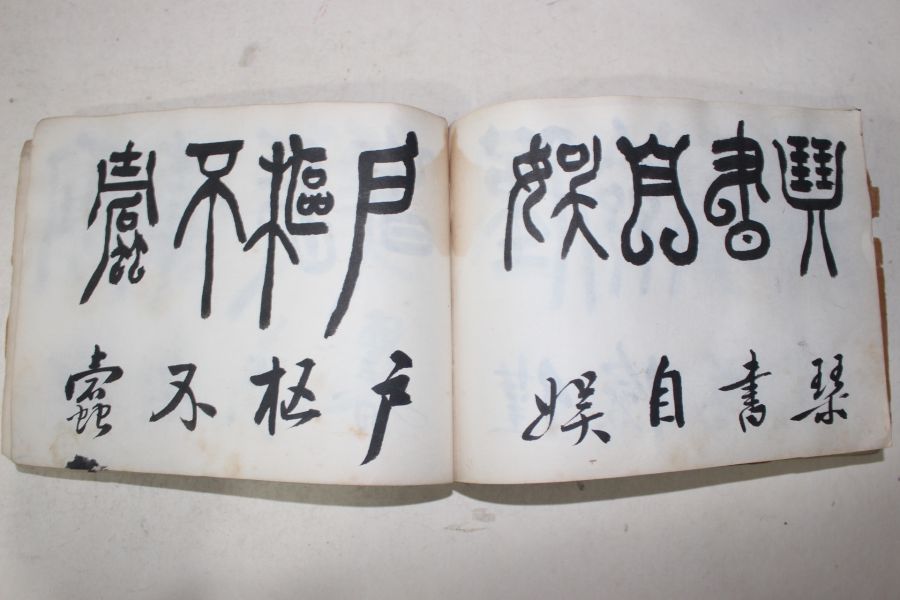 琴書自娱
琴書自娱
戶樞不蠹
户枢不蠹